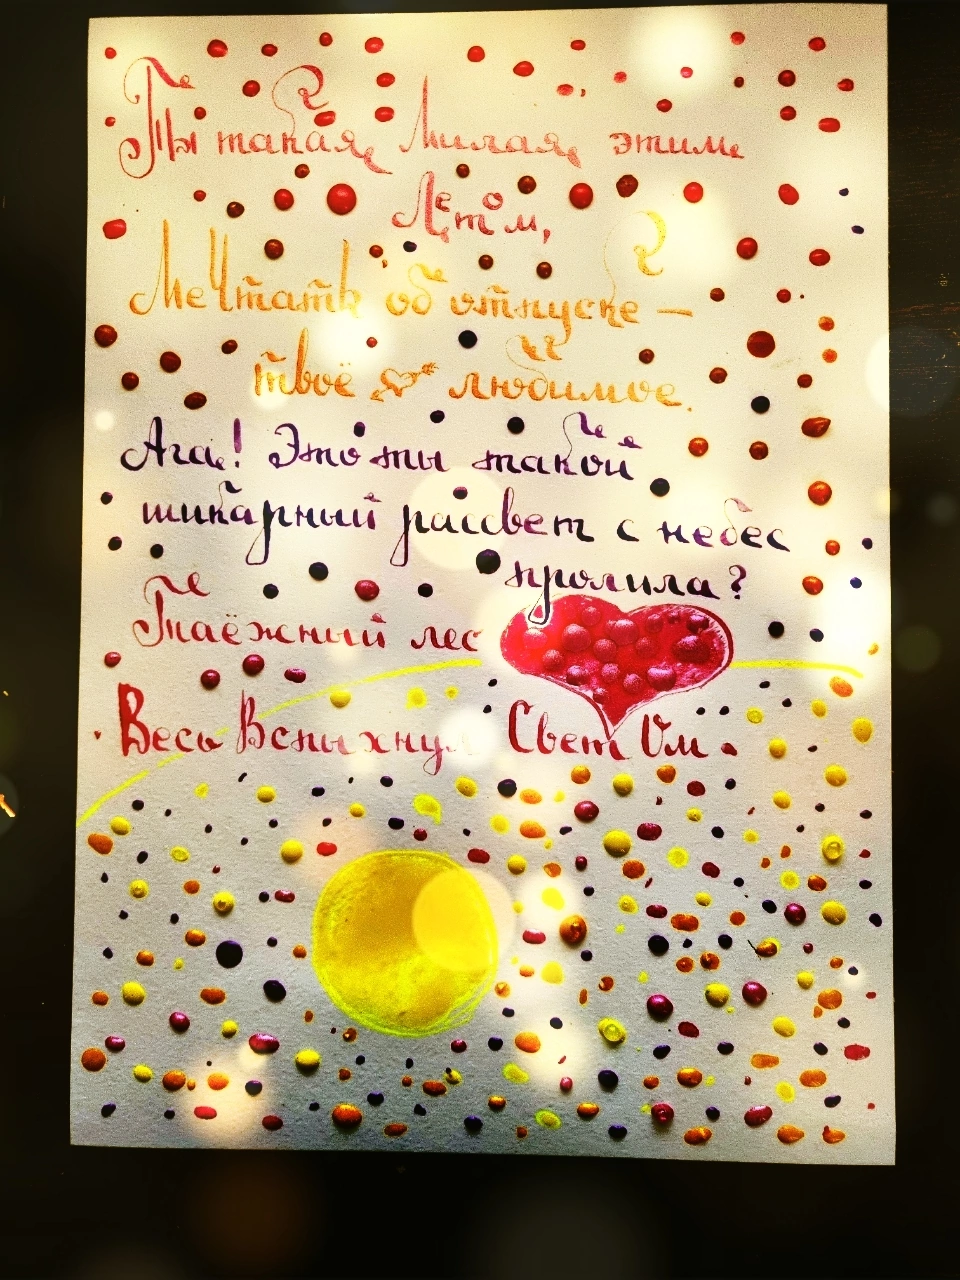 Ты такая милая этим
Летом,
Мечтать об отпуске –
твоё любимое.
Ага! Это ты такой
шикарный рассвет с небес
пролила?
Таёжный лес
Весь Вспыхнул СветОм.